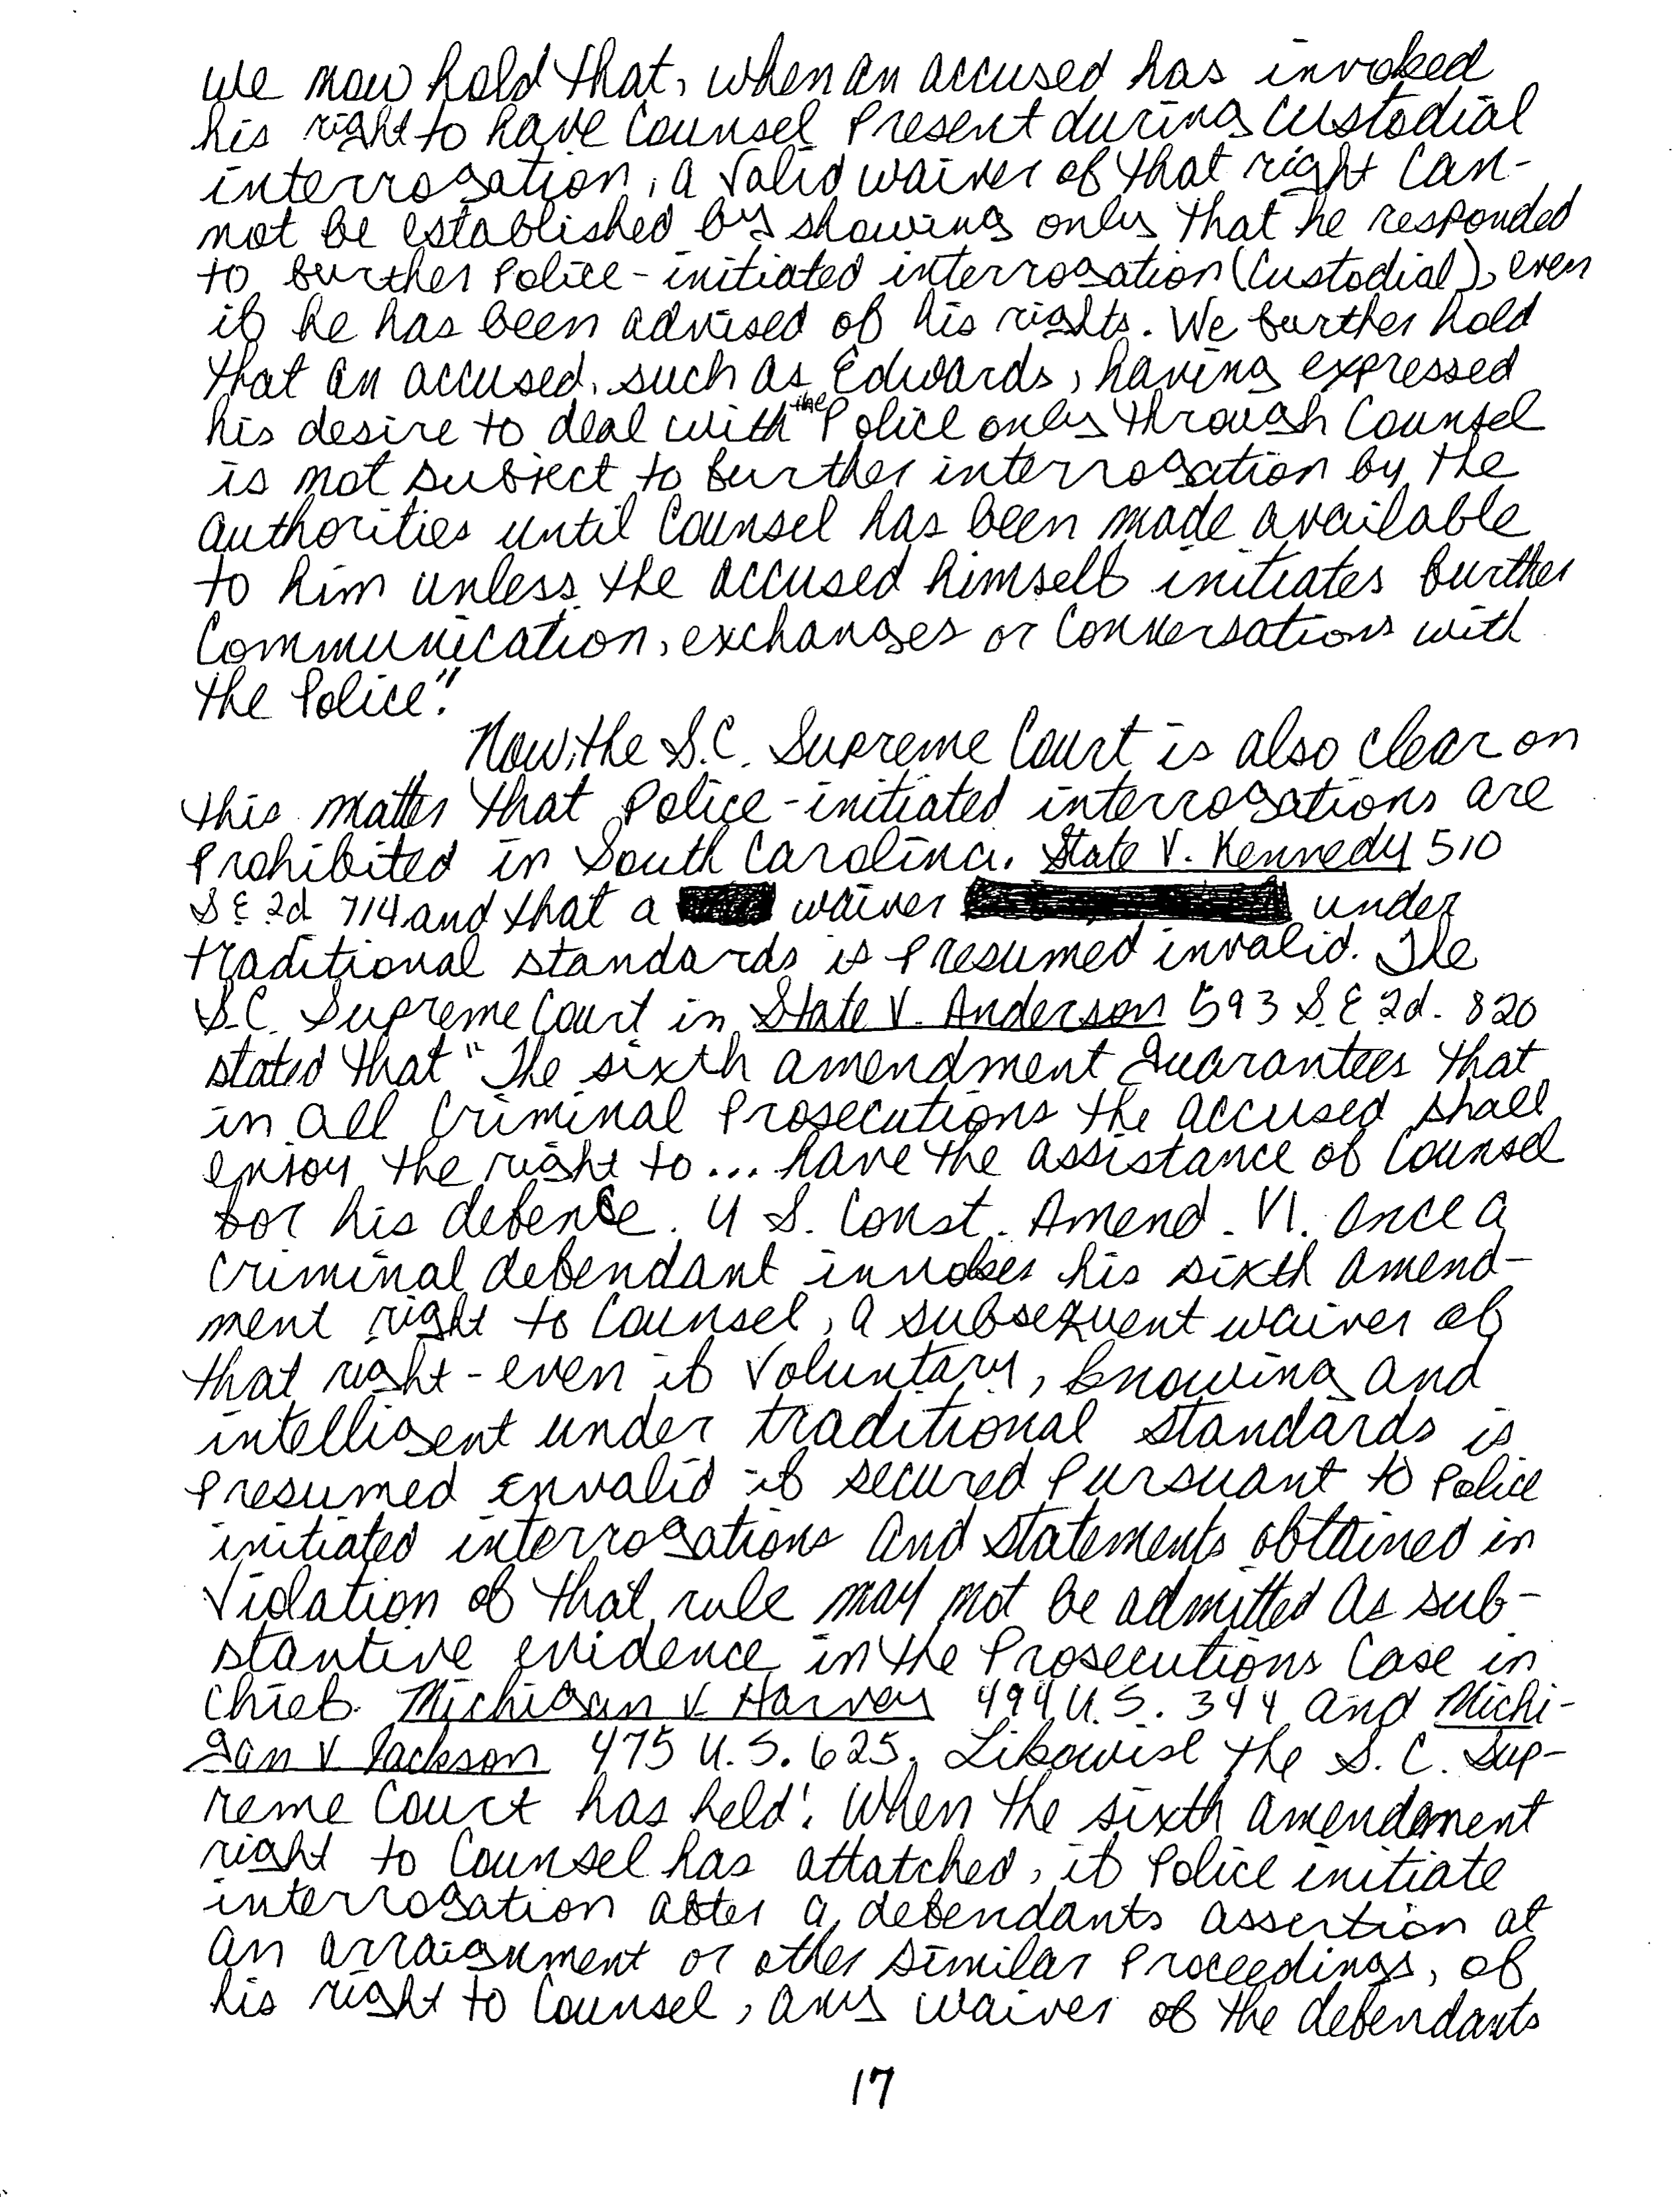 we now hold that, when an accused has invoked
his right to have Counsel Present during Custodial
interrogation, a valid waiver of that right Can-
not be established by showing only that he responded
to further Police-initiated interrogation (Custodial), even
if he has been advised of his rights. We further hold
that an accused, such as Edwards, having expressed
his desire to deal with the Police only through Counsel
is not subject to further interrogation by the
authorities until Counsel has been made available
to him unless the accused himself initiates further
Communication, exchanges or Conversations with
the Police".
Now, the S.C. Supreme Court is also clear on
this matter that Police-initiated interrogations are
Prohibited in South Carolina. State V. Kennedy 510
S E 2d 714 and that a waiver under
traditional standards is Presumed invalid. The
S.C. Supreme Court in State V. Anderson 593 S.E 2d. 820
stated that "The sixth amendment guarantees that
in all Criminal Prosecutions the accused shall
enjoy the right to... have the assistance of Counsel
for his defence. U S. Const. Amend. VI. Once a
Criminal defendant invokes his sixth amend-
ment right to Counsel, a subsequent waiver of
that right - even if Voluntary, knowing and
intelligent under traditional standards is
Presumed invalid if secured Pursuant to Police
initiated interrogations and statements obtained in
Violation of that rule may not be admitted as sub-
stantive evidence in the Prosecutions Case in
Chief. Michigan V. Harvey 494 U.S. 344 and Michi-
gan V Jackson 475 U.S. 625. Likewise the S.C. Sup-
reme Court has held: When the sixth amendment
right to Counsel has attatched, if Police initiate
interrogation after a defendants assertion at
an arraignment or other similar Proceedings, of
his right to Counsel, any waiver of the defendants
17